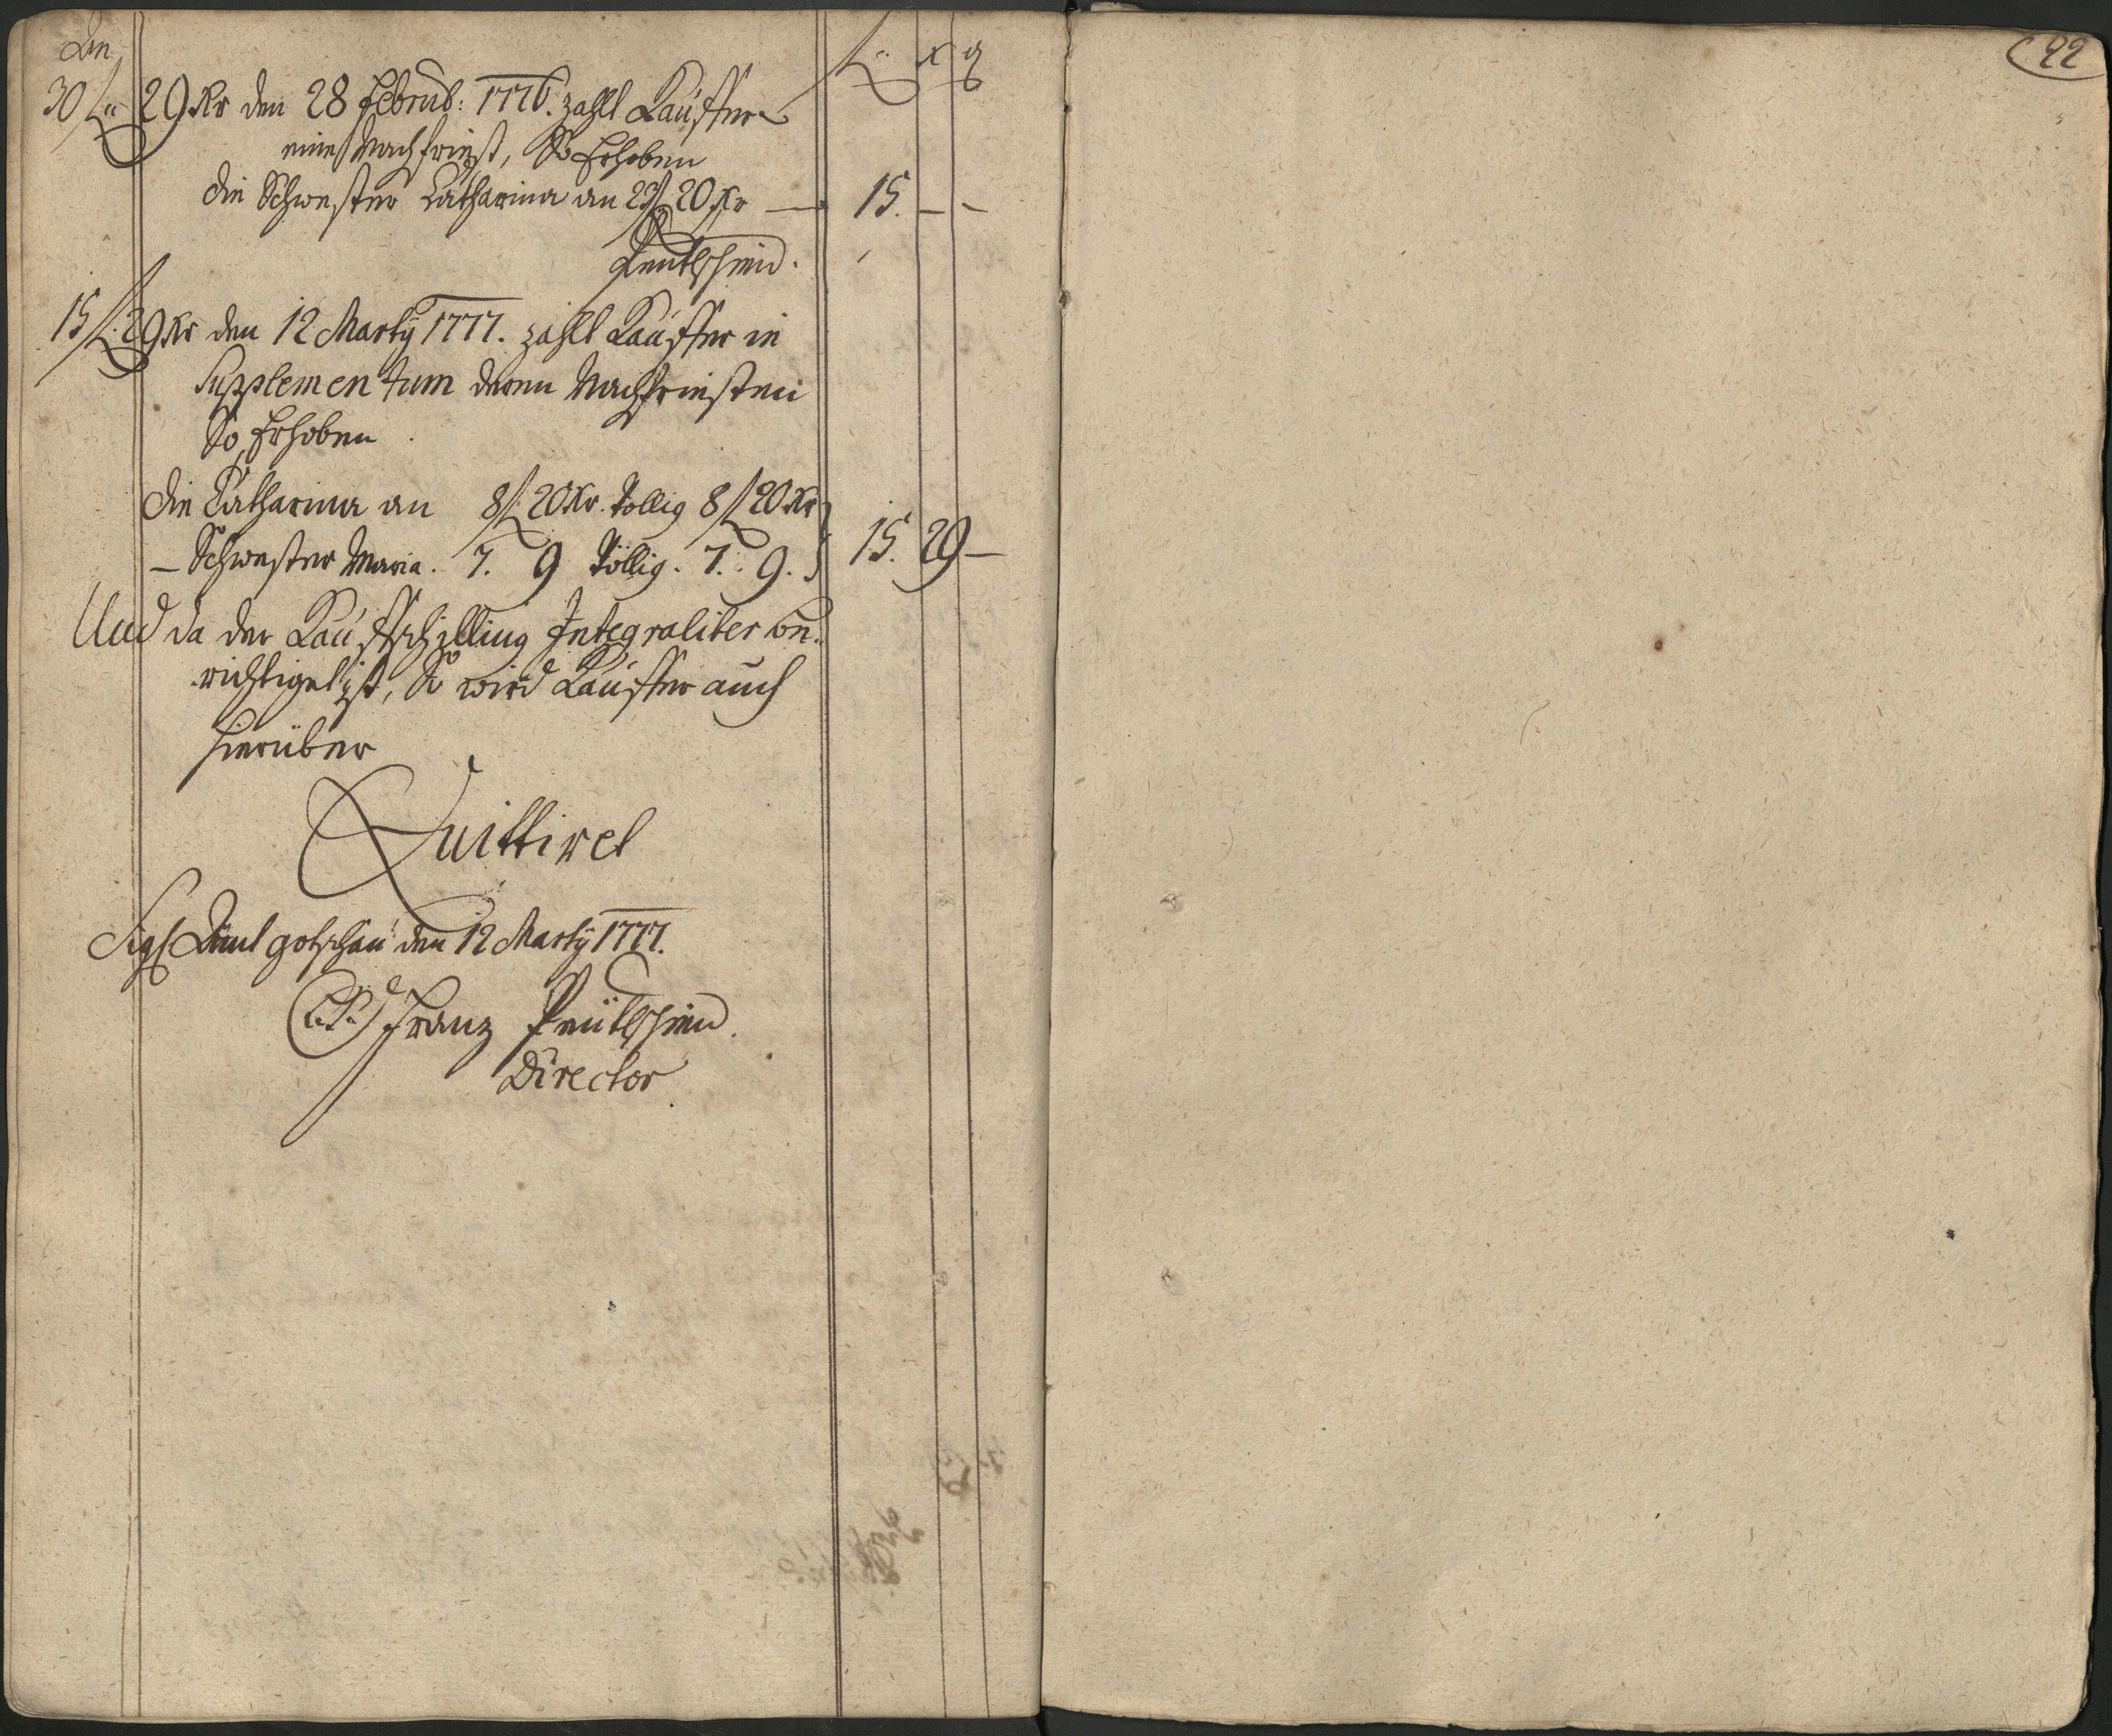 An
f x q
30 f 29 Kr den 28 Februb: 1776. zahlt Kauffer
eine Nachfriest, So Erhoben
die Schwester Catharina an 23 f 20 Kr — 15. – –
15 f: 29 Kr den 12 Marty 1777. zahlt Kauffer in
Supplementum denen Nachfriesten
So Erhoben
die Catharina an 8 f 20 Kr. Vollig 8 f 20 Kr
– Schwester Maria. 7. 9 Völlig. 7. 9. 15. 29 –
Und da der Kauffschilling Integraliter be:
richtiget ist, So wird Kauffer auch
hierüber
Quittiret
Sigl Amt gotschau den 12 Marty 1777.
(L.S.) Franz
Director
92